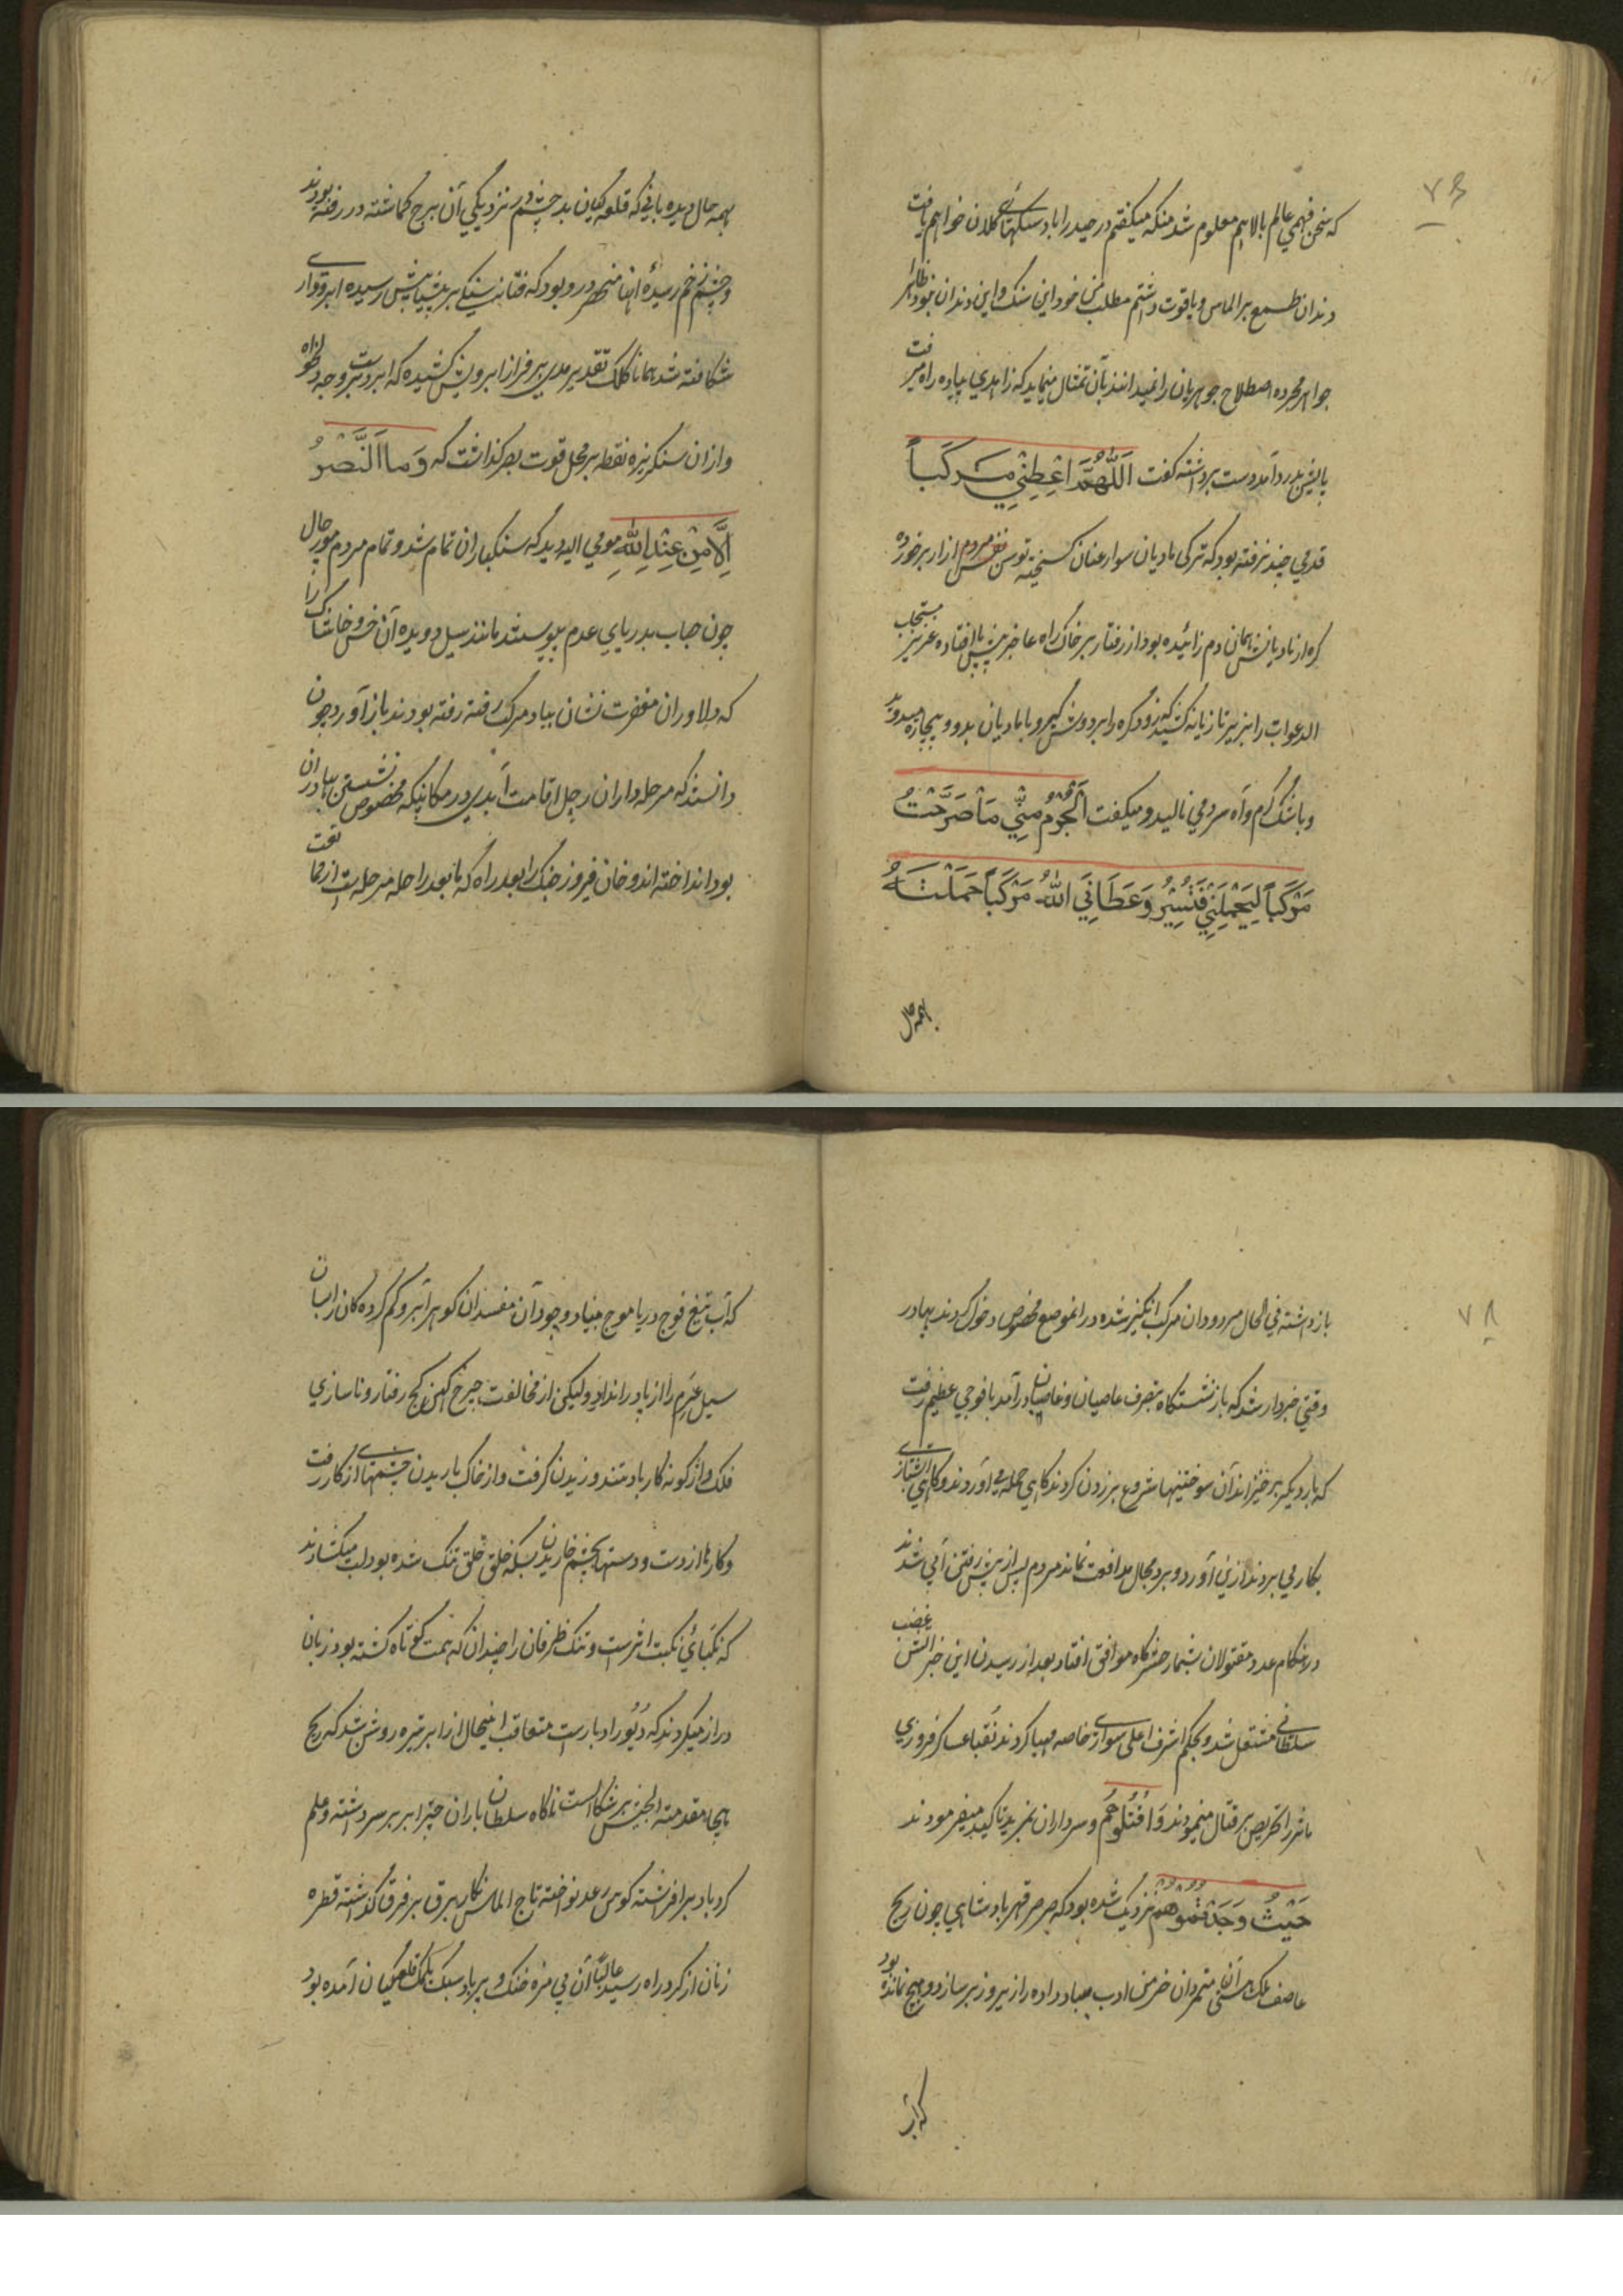 ۷۶
که سخن فهمی عالم بالا هم معلوم شد منکه میکفتم در حیدراباد سنکهائے کلان خواهم یافت
دندان طمع بر الماس و یاقوت داشتم مطلب من خود این سنک و این دندان نبود ظاهرا
جواهر مجرده اصطلاح جوهریان را نمیدانند بآن تمثال مینماید که زاهدی پیاده راه میرفت
پایش بدرد آمد دست برداشته کفت اَللّٰهُمَّ اَعْطِنِی مَرْکَباً
قدمی چند نرفته بود که ترکی مادیان سوار عنان کسیخته توسن نفس مردم ازار برخورده
کره از مادیانش همان دم زائیده بود از رفتار بر خاک راه عاجز پیش پا افتاده عزیز مستجاب
الدعوات را بزیر تازیانه کشید که زود کره را بر دوش کیر و با مادیان بدو و بیچاره میدوید
و باشک کرم و آه سرد می نالید و میکفت اَلْجُرْمُ مِنِّی مَا صَرَّحْتُ
مَرْکَباً لِیَحْمِلَنِی فَتَسِیْرُ وَعَطَانِیَ اللّٰهُ مَرْکَباً حَمَلْتَهُ
بهمه حال
بهمه حال دیده بانی که قلعه کیان بد چشم در نزدیکی آن برج کماشته در رفته بودند
و چشم زخم رسیده آنها منحصر درو بود که فتانه سنکی بر پیشانیش رسیده ابرو واری
شکافته شد همانا کلک تقدیر مدی بر فراز ابرویش کشیده که ابروست بر وجه دلخواه
و ازان سنکریزه نقطه بر محل قوت بصر کذاشت که وَمَا النَّصْرُ
اِلَّا مِنْ عِنْدِ اللّٰهِ مومی الیه دید که سنکباران تمام شد و تمام مردم مورچال
چون حباب بدریای عدم پیوستند مانند سیل دویده آن خس و خاشاک را
که دلاوران مغفرت نشان بیاد مرک رفته رفته بودند باز آورد چون
دانستند که مرحله داران رحل اقامت ابدی در مکانیکه مخصوص نشستن بهادران
بود انداخته اند و خان فیروز جنک را بعد راه که تا بعد راحله مرحله بست از رفاقت
۷۸
باز داشته فی الحال مردودان مرکب انکیز شده در انموضع مخصوص دخول کردند بهادر
وقتی خبردار شد که باز نشستکاه بتصرف عاصیان و غاصبان درآمد با فوجی عظیم رفت
که بار دیکر برخیزاند آن سوختنیها شروع بزدن کردند کاهی حمله می آوردند و کاهی آتشبازی
بکار می بردند ازین آورد و برد مجال مدافعت نماند مردم پس از پیش رفتن آبی شدند
درهنکام عدد مقتولان بشمار حشرکاه موافق افتاد بعد از رسیدن این خبر آتش غضب
سلطانی مشتعل شد و بحکم اشرف اعلی سواری خاصه مهیا کردند نُقبا عساکر فیروزی
ماثر را تحریص بر قتال مینمودند وَ اقْتُلُوْهُمْ و سرداران بمزید تاکید میفرمودند
حَیْثُ وَجَدْتُمُوْهُمْ نزدیک شده بود که صرصر قهر بادشاهی چون ریح
عاصف ملک هستی آن متمردان خرمن ادب بباد داده را زیر و زبر سازد و هیچ نمانده بود
که آب
که آب تیغ فوج دریا موج بنیاد وجود آن مفسدان کوهر آبرو کم کرده کان را بسان
سیل عَرِم را از پا دراندازد ولیکن از مخالفت چرخ کهن کج رفتار و ناسازی
فلک واژکونه کار باد تند وزیدن کرفت و از خاک باریدن چشمهای از کار رفت
و کارها از دست و دستها بچشم خاریدن بسکه خلق خُلق تنک شده بود لب میکشادند
که نکبائی نکبت اثرست و تنک ظرفان را چندان که همت کوتاه کشته بود زبان
دراز میکردند که دَبُور ادبارست متعاقب اینحال از ابر تیره روشن شد که ریح
هیجا مقدمة الجیش برشکالست ناکاه سلطان باران چتر ابر بر سر داشته و علم
کردباد برافراشته کوس رعد نواخته تاج الماس نکار برق بر فرق کذاشته قطره
زنان از کرد راه رسید غالباً آن بی مزه خنک و بر باد سبک بکمک قلعکیان آمده بود